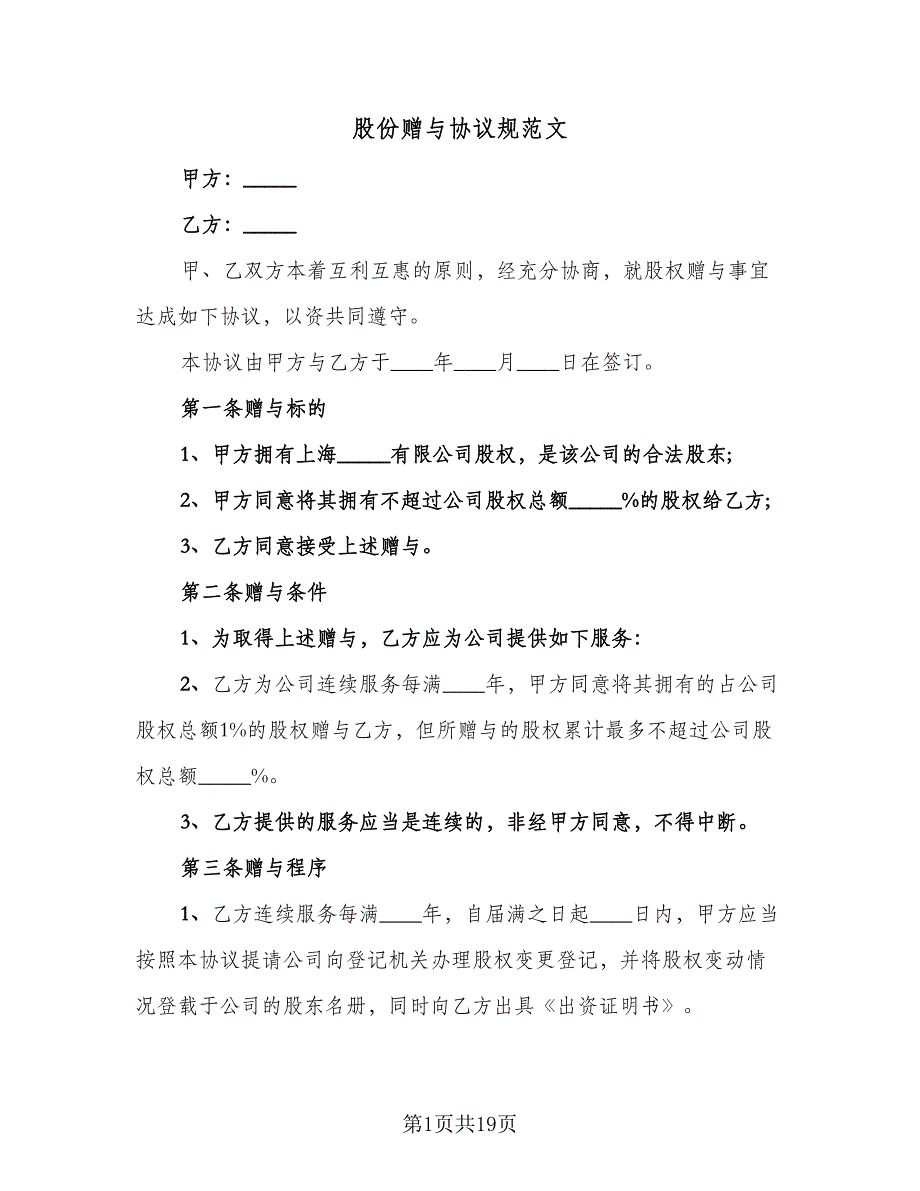 股份赠与协议规范文
甲方：_____
乙方：_____
甲、乙双方本着互利互惠的原则，经充分协商，就股权赠与事宜
达成如下协议，以资共同遵守。
本协议由甲方与乙方于____年____月____日在签订。
第一条赠与标的
1、甲方拥有上海_____有限公司股权，是该公司的合法股东;
2、甲方同意将其拥有不超过公司股权总额_____%的股权给乙方;
3、乙方同意接受上述赠与。
第二条赠与条件
1、为取得上述赠与，乙方应为公司提供如下服务：
2、乙方为公司连续服务每满____年，甲方同意将其拥有的占公司
股权总额1%的股权赠与乙方，但所赠与的股权累计最多不超过公司股
权总额_____%。
3、乙方提供的服务应当是连续的，非经甲方同意，不得中断。
第三条赠与程序
1、乙方连续服务每满____年，自届满之日起____日内，甲方应当
按照本协议提请公司向登记机关办理股权变更登记，并将股权变动情
况登载于公司的股东名册，同时向乙方出具《出资证明书》。
第1页共19页